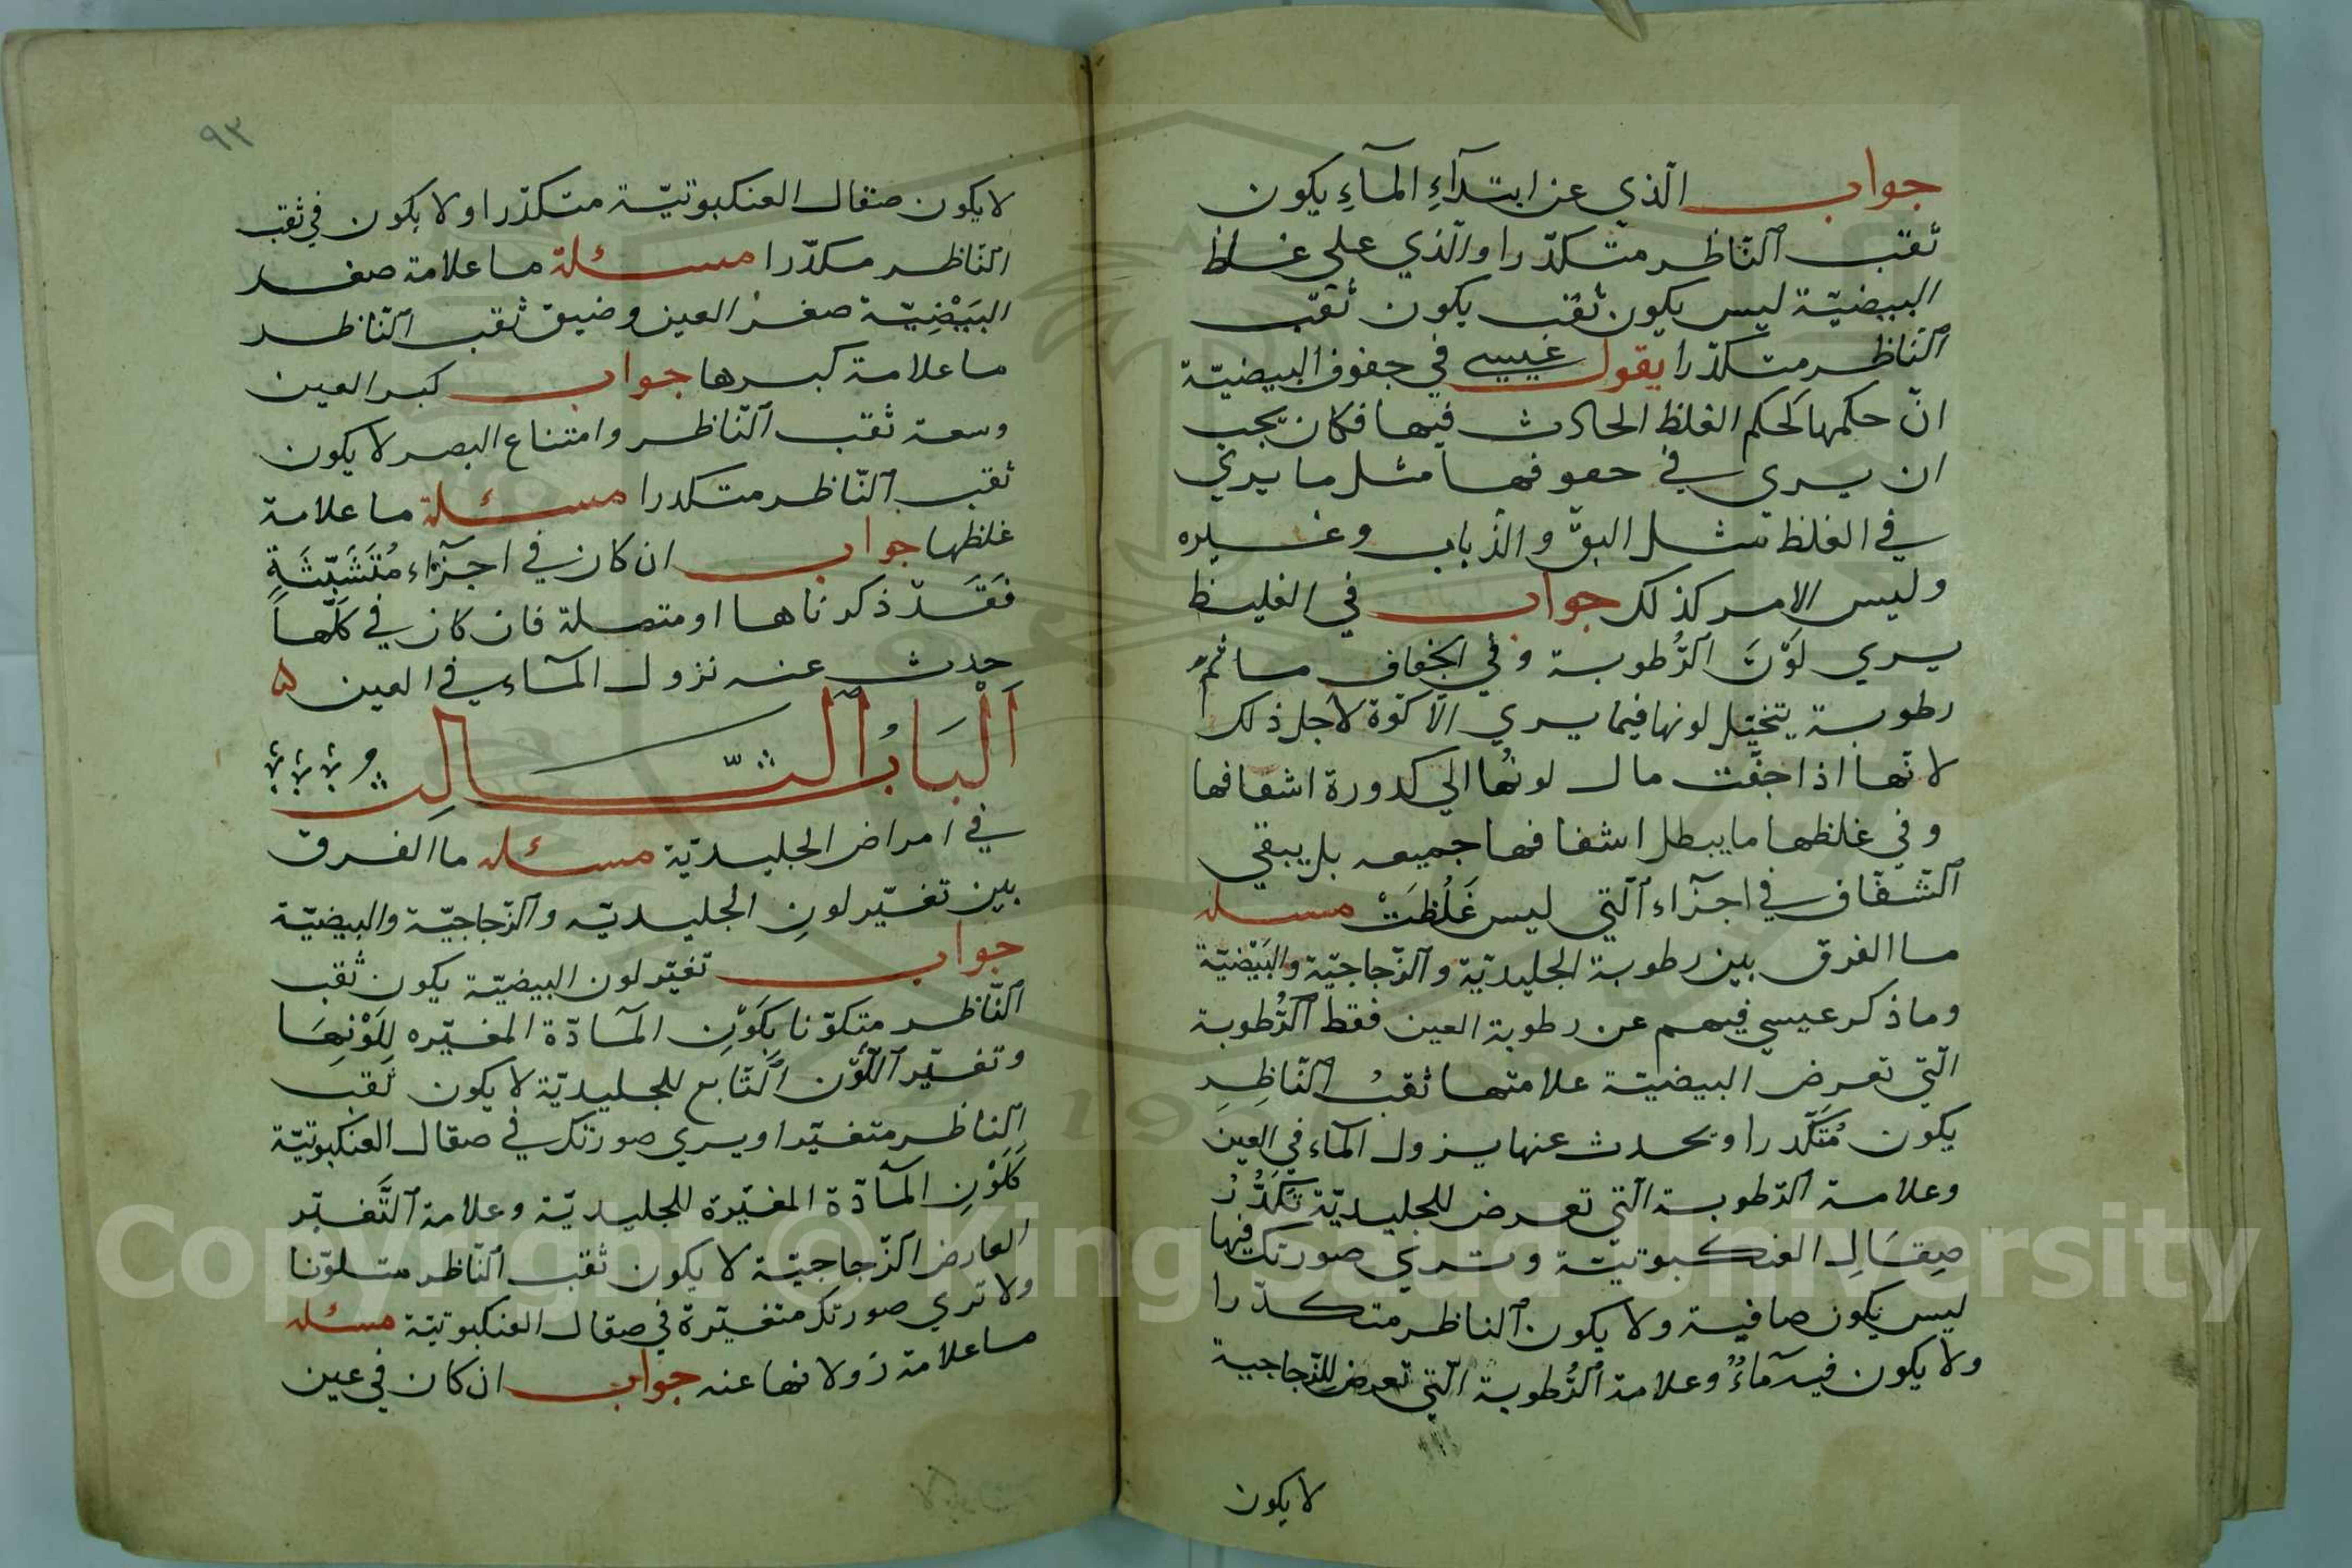 جواب الّذي عن ابتدآءِ المآءِ يكون
ثقب النّاظر متكدّرا والّذي على غلظ
البيضيّة ليس يكون ثقب يكون ثقب
النّاظر متكدّرا يقول عيسى في جفوف البيضيّة
انّ حكمها كحكم الغلظ الحادث فيها فكان يجب
ان يرى في جفوفها مثل ما يرى
في الغلظ مثل البقّ والذّباب وغيره
وليس الامر كذلك جواب في الغليظ
يرى لوّن الرُّطوبة وفي الجفاف ما ثمّ
رطوبة يتخيّل لونها فيما يرى الّا كوّة لاجل ذلك
لانّها اذا جفّت مال لونُها الى كدورة اشفافها
وفي غلظها ما يبطل اشفافها جميعه بل يبقى
الشّفّاف في اجزآء الّتي ليس غَلُظَتْ مسله
ما الفرق بين رطوبة الجليديّة والزّجاجيّة والبَيْضيّة
وما ذكر عيسى فيهم عن رطوبة العين فقط الرُّطوبة
الّتي تعرض البيضيّة علامتها ثقبُ النّاظِرِ
يكون مُتَكّدرا ويحدث عنها يزول المآء في العين
وعلامة الرّطوبة الّتي تعرض للجليديّة تَكَدُّرُ
صِقَالِ العنكبوتيّة وترى صورتك فيها
ليس يكون صافية ولا يكون النّاظر متكدّرا
ولا يكون فيه مآءٌ وعلامة الرُّطوبة الّتي تعرض للزّجاجية
لا يكون
٩٣
لا يكون صقال العنكبوتيّة متكدّرا ولا يكون في ثقب
النّاظر مكدّرا مسئلة ما علامة صغر
البَيْضِيّة صغرُ العين وضيق ثقب النّاظر
ما علامة كبرها جواب كبر العين
وسعة ثقب النّاظر وامتناع البصر لا يكون
ثقب النّاظر متكدرا مسئلة ما علامة
غلظها جواب ان كان في اجزآء مُتَشَبّثَةٍ
فَقَدّ ذكرناها او متصلة فان كان في كلّها
حدث عنه نزول المآء في العين ۵
اَلْبَابُ الثّالِث
في امراض الجليديّة مسئله ما الفرق
بين تغيّر لونِ الجليديّه والزّجاجيّة والبيضيّة
جواب تغيّر لون البيضيّة يكون ثقب
النّاظر متكوّنا بكَوْنِ المآدّة المغيّره لِلَوْنِهَا
وتغيّر اللّوْن التّابع للجليديّة لا يكون ثقب
الناظر متغيّرا ويرى صورتك في صقال العنكبوتيّة
كَلَوْنِ المآدّة المغيّرة للجليديّة وعلامة التَّغيّر
العارض الزّجاجيّة لا يكون ثقب النّاظر متلوّنا
ولا ترى صورتك متغيّرة في صقال العنكبوتيّة مسئله
ما علامة زولانها عنه جواب ان كان في عين
Copyright © King Saud University